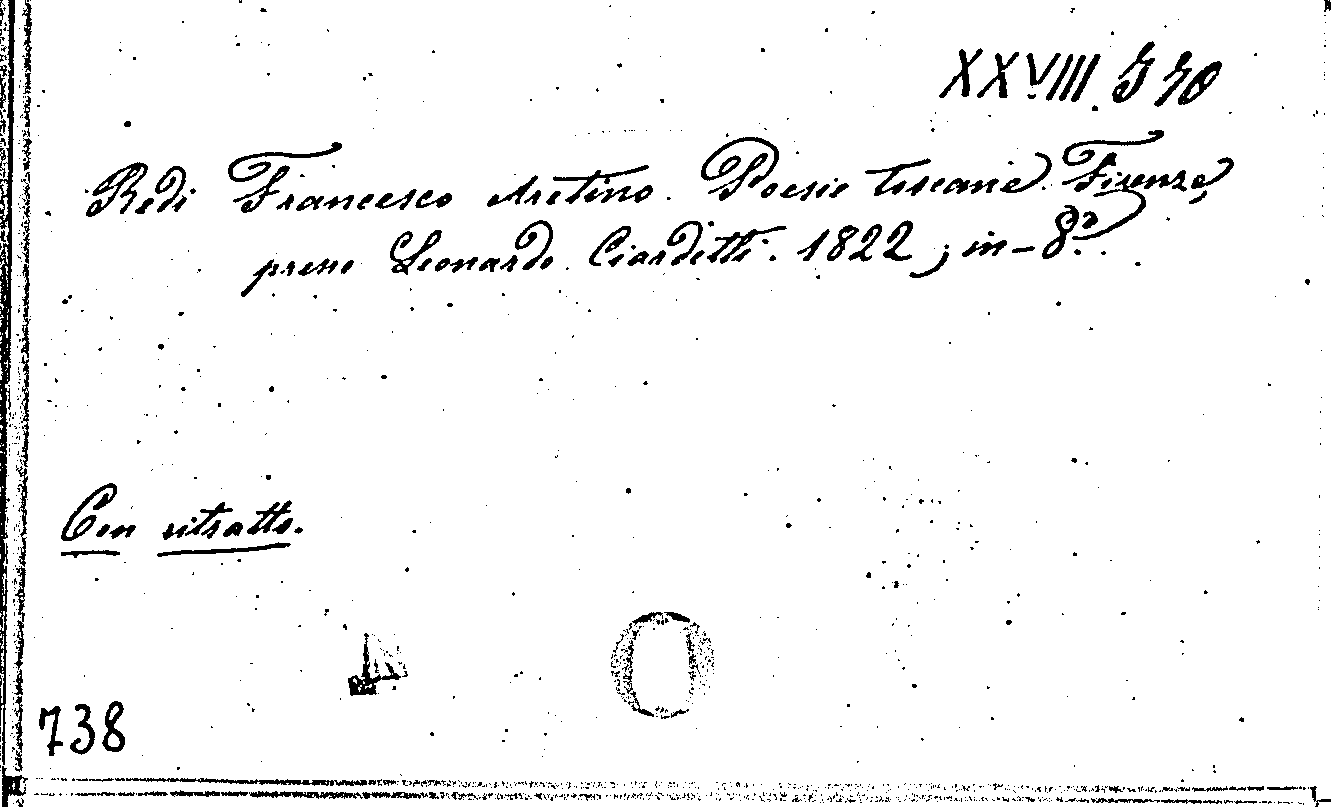 XXVIII J 70
Redi Francesco Aretino. Poesie toscane. Firenze,
presso Leonardo Ciardetti. 1822; in-8.º
Con ritratto.
738